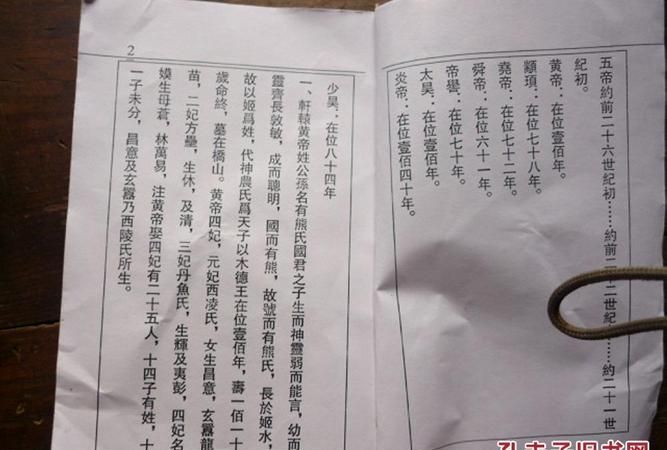 五帝約前二十六世紀初……約前二十二世紀……約二十一世
紀初。
黄帝：在位壹佰年。
顓頊：在位七十八年。
堯帝：在位七十二年。
舜帝：在位六十一年。
帝嚳：在位七十年。
太昊：在位壹佰年。
炎帝：在位壹佰四十年。
2
少昊：在位八十四年
一、軒轅黄帝姓公孫名有熊氏國君之子生而神靈弱而能言，幼而
靈齊長敦敏，成而聰明，國而有熊，故號而有熊氏，長於姬水，
故以姬爲姓，代神農氏爲天子以木德王在位壹佰年，壽一佰一十
歲命終，墓在橋山。黄帝四妃，元妃西凌氏，女生昌意，玄囂龍
苗，二妃方壘，生休，及清，三妃丹魚氏，生輝及夷彭，四妃名
嫫生母蒼，林萬易，注黄帝娶四妃有二十五人，十四子有姓，十
一子未分，昌意及玄囂乃西陵氏所生。
孔夫子旧书网